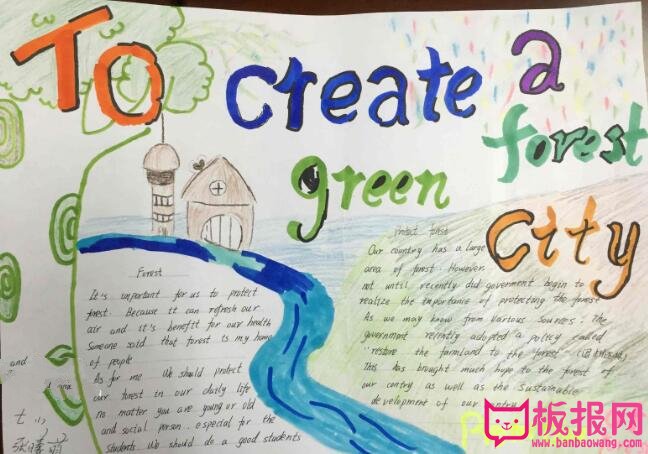 To create a
green forest
city
Forest
It's important for us to protect
forest. Because it can refresh our
air and it's benefit for our health
Someone said that forest is my home
of people
As for me We should protect
our forest in our daily life
no matter you are young or old
and social person. especial for the
students. We should do a good students
and
Our country has a large
area of forest. However,
not until recently did goverment begin to
realize the importance of protecting the forest
As we may know from various sources. The
government recently adopted a policy called
"restore the farmland to the forest"
This has brought much hope to the forest of
our contry as well as the sustainable
development of our contry
板报网
www.banbaowang.com